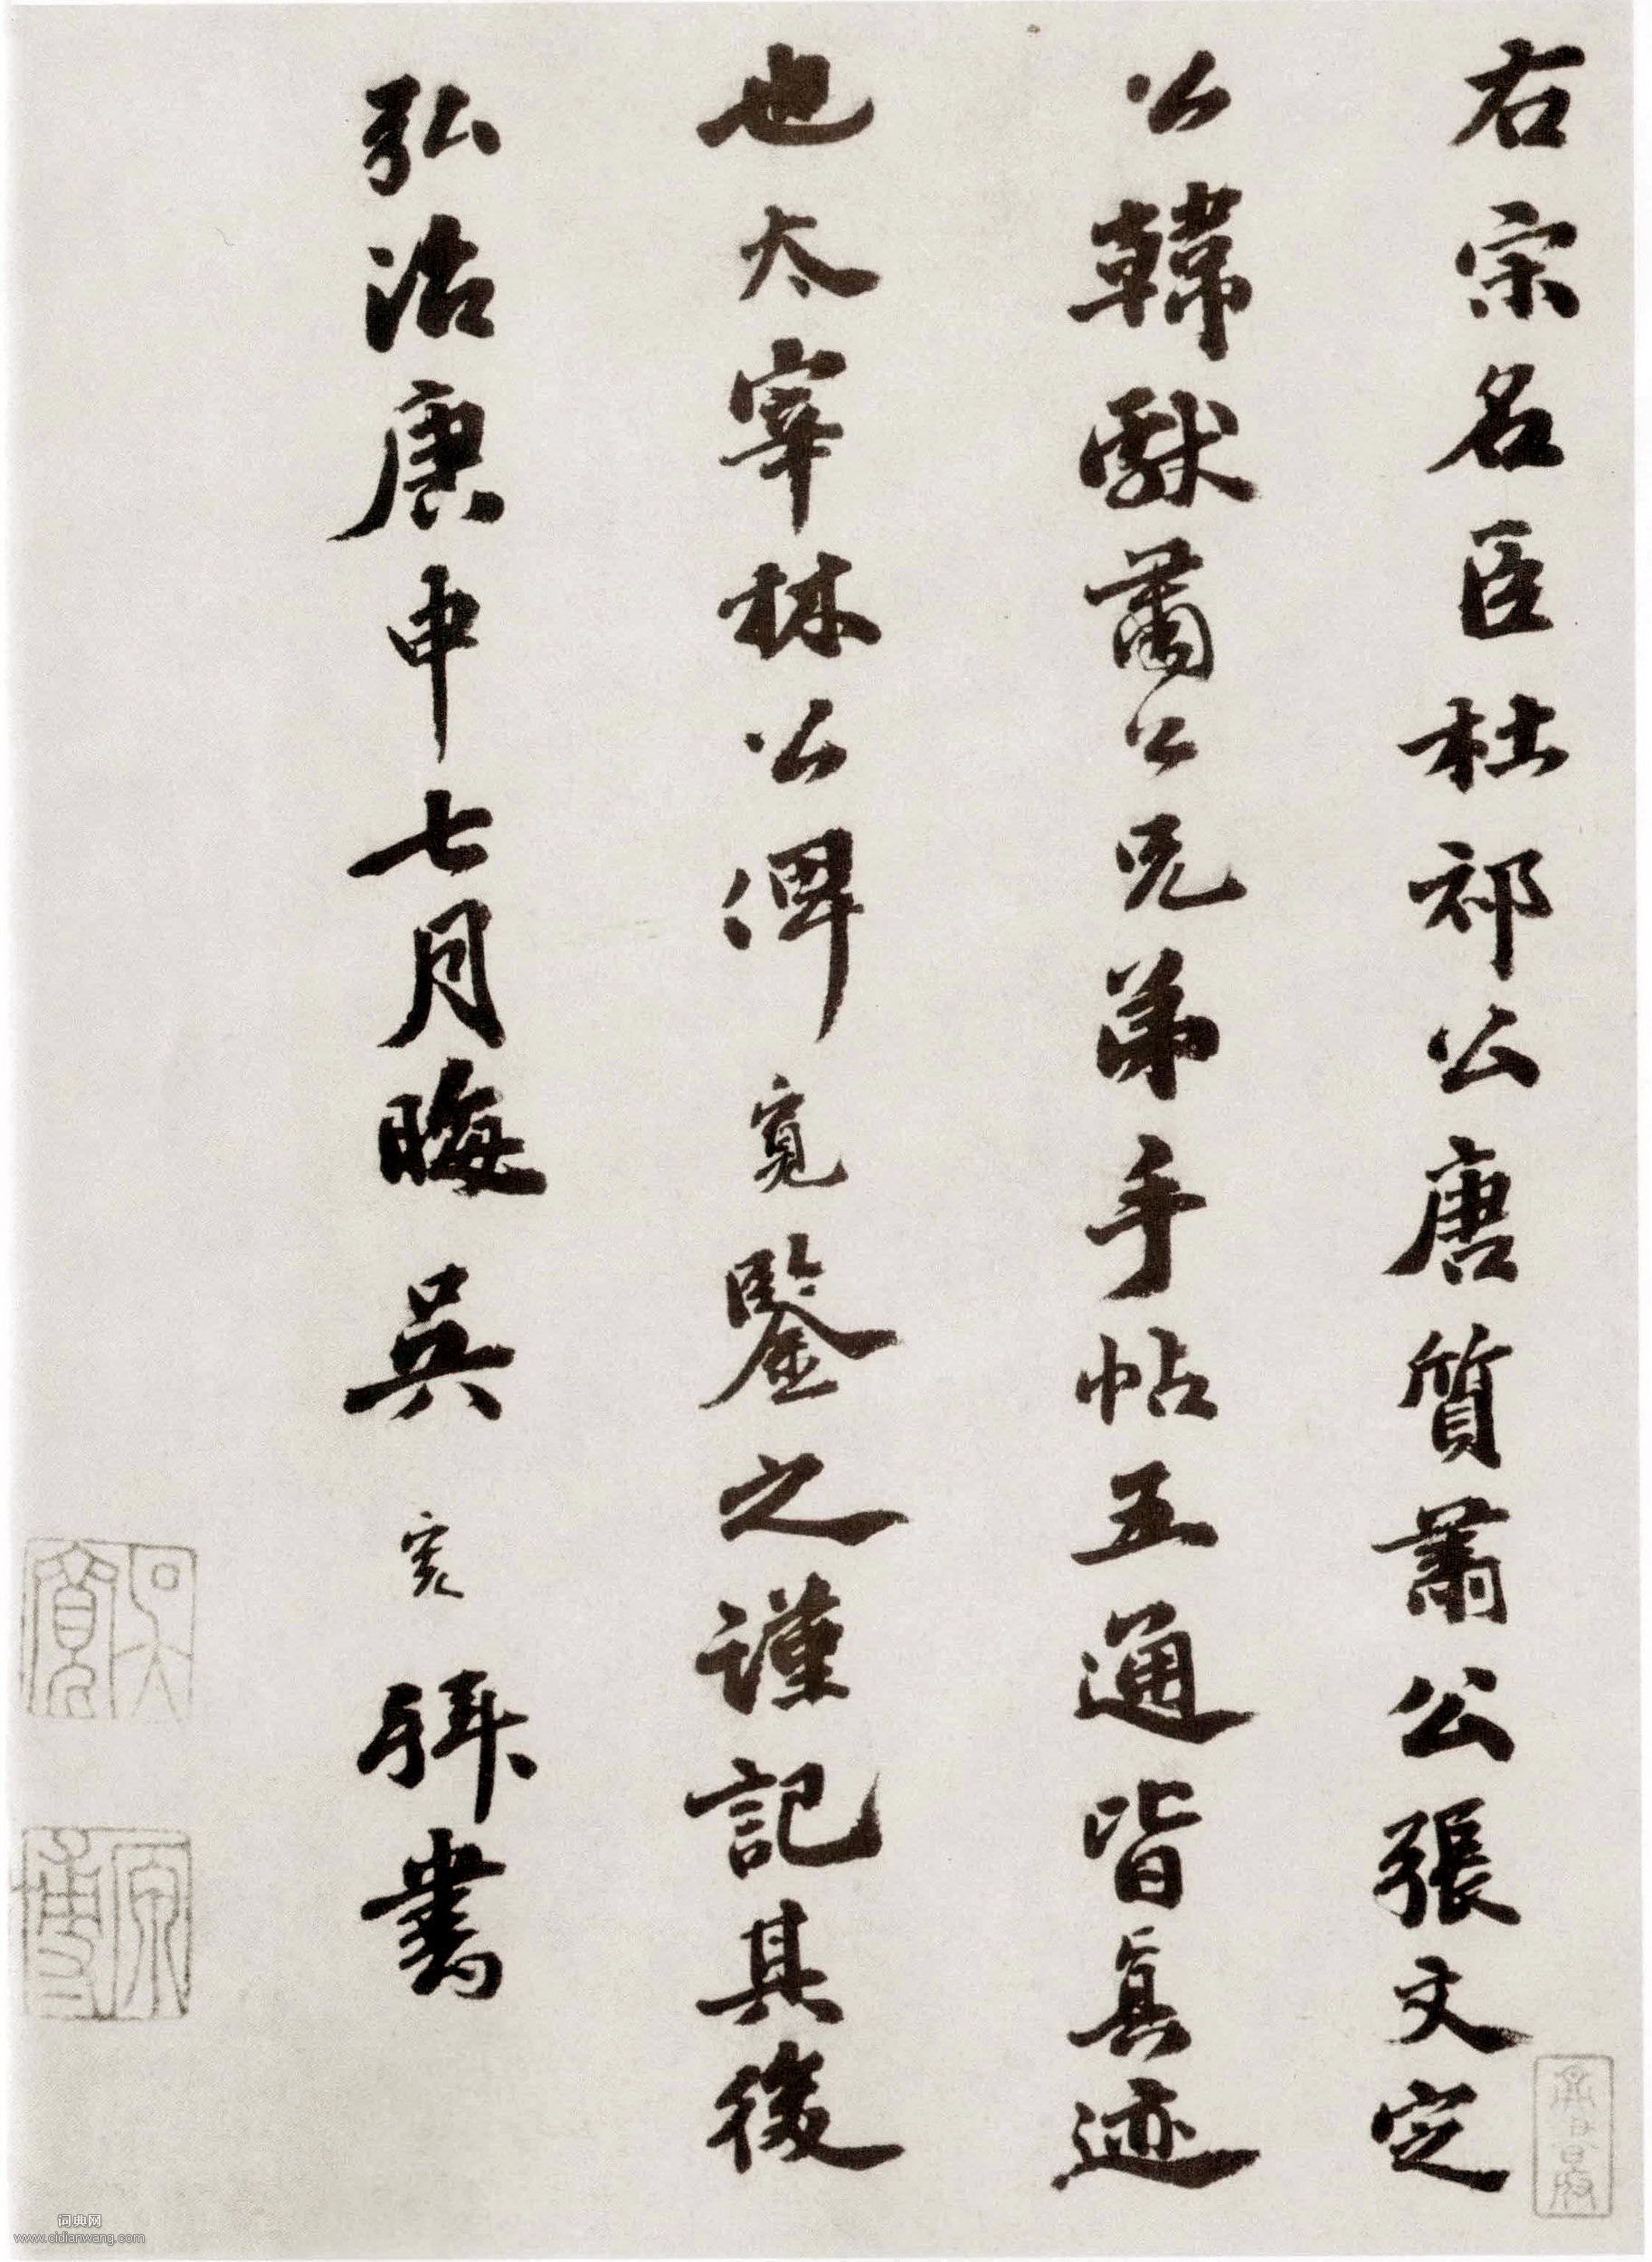 右宋名臣杜祁公唐質肅公張文定
公韓獻肅公兄弟手帖五通皆真迹
也太宰林公俾寬鑒之謹記其後
弘治庚申七月晦吳寬拜書
吳寬
原博
词典网
www.cidianwang.com